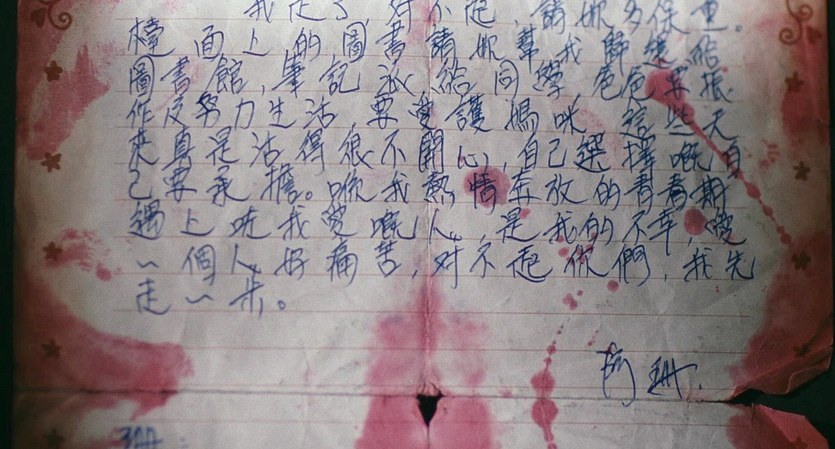 我走了,对不起,請妳多保重。
檯面上的圖書請妳幫我歸還給
圖書館,筆記派給同學,爸爸要振
作及努力生活,要愛護媽咪,這些天
來真是活得很不開心,自己選擇嘅自
己要承擔。喺我熱情奔放的青春期
遇上咗我愛嘅人,是我的不幸,愛
一個人好痛苦,对不起你們,我先
走一步。
阿珊.
珊: